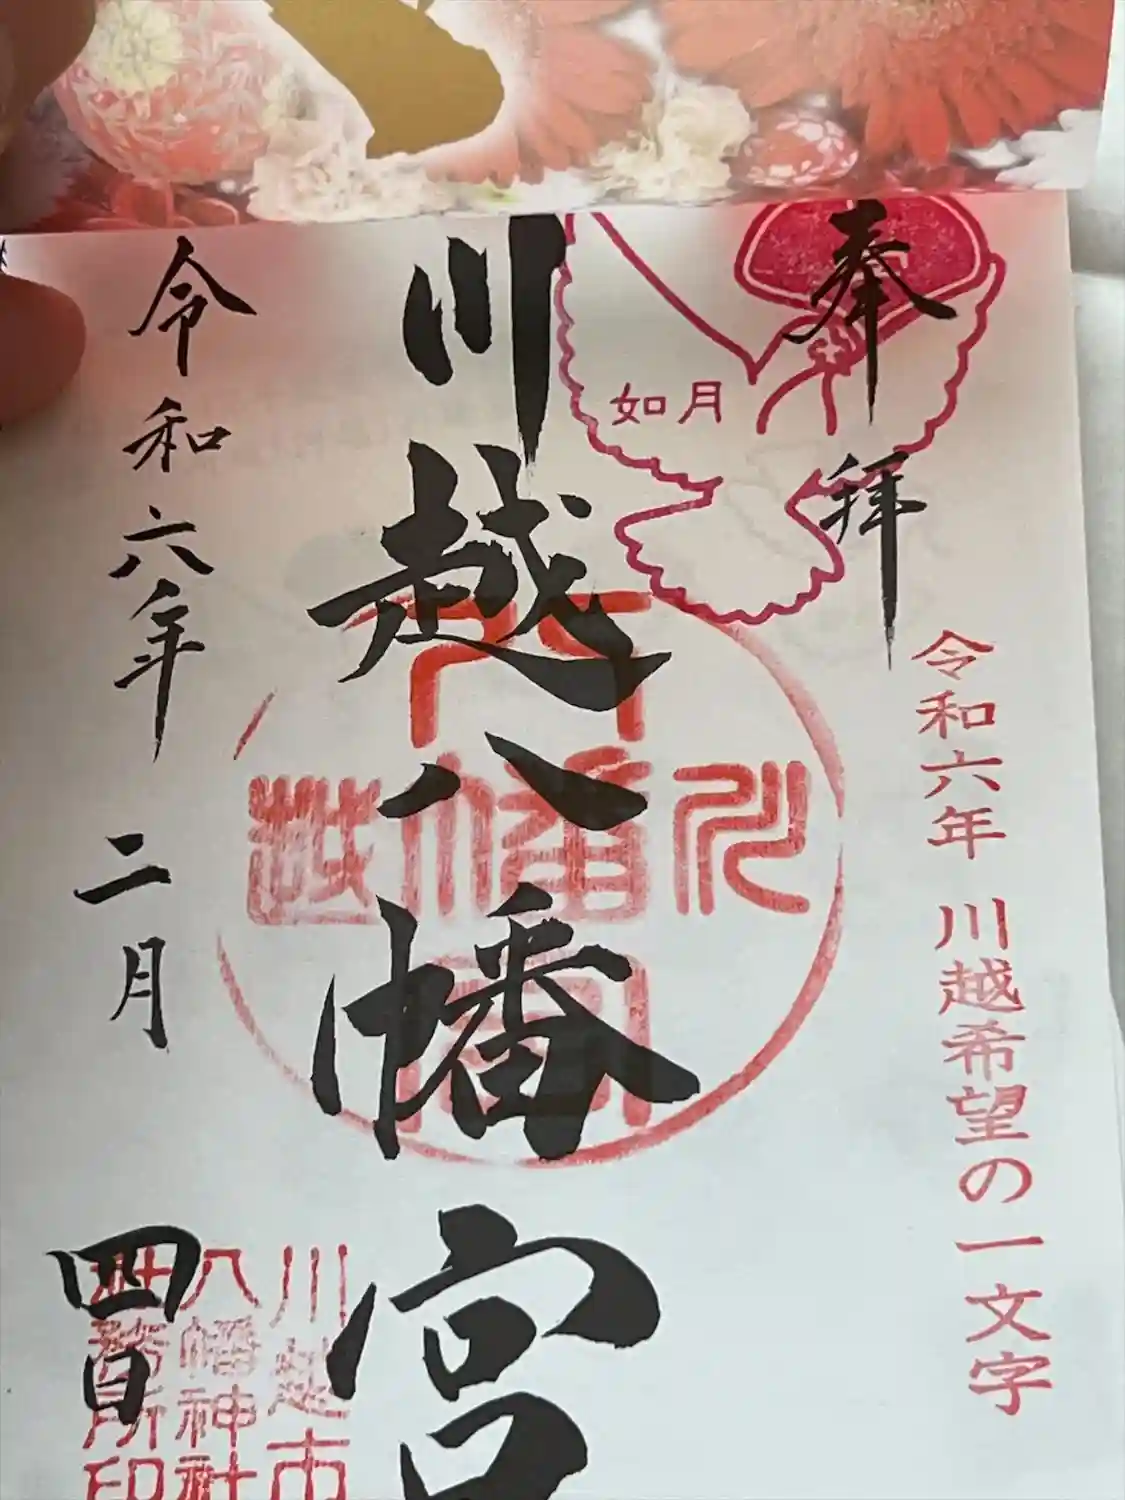 奉拝
令和六年 川越希望の一文字
如月
川越八幡宮
八幡宮
川
越
川越市
八幡神社
社務所印
令和六年 二月 四日